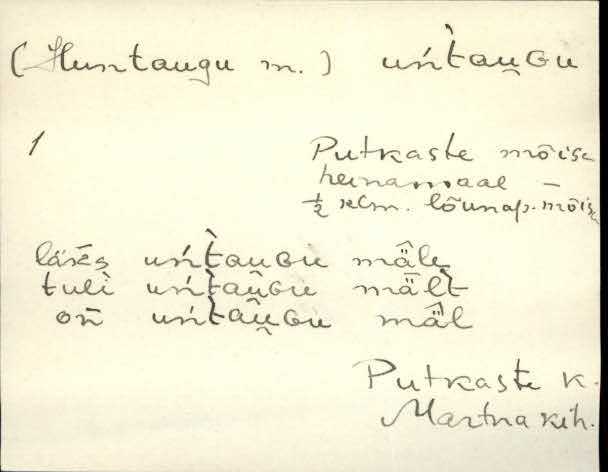 (Huntaugu m.) uńt̀au̬ɢu
1
Putkaste mõisa
heinamaal –
½ klm. lõunap. mõis
läks uńt̀au̬ɢu mäle
tuli uńt̀au̬ɢu mält
on uńt̀au̬ɢu mäl
Putkaste k.
Martna kih.